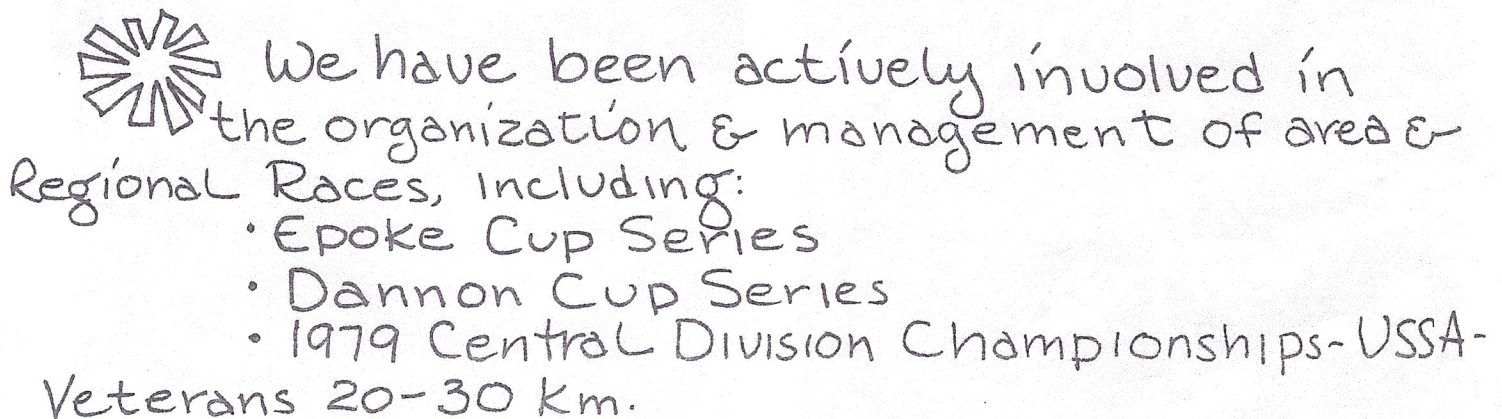 We have been actively involved in
the organization & management of area &
Regional Races, including:
• Epoke Cup Series
• Dannon Cup Series
• 1979 Central Division Championships-USSA-
Veterans 20-30 km.